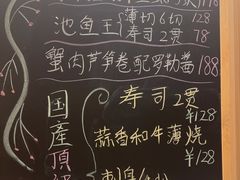 池鱼王 薄切6切 128
寿司2贯 78
蟹肉芦笋卷配罗勒酱 188
国産頂级
寿司2贯
¥128
蒜香和牛薄烧
¥128
刺身